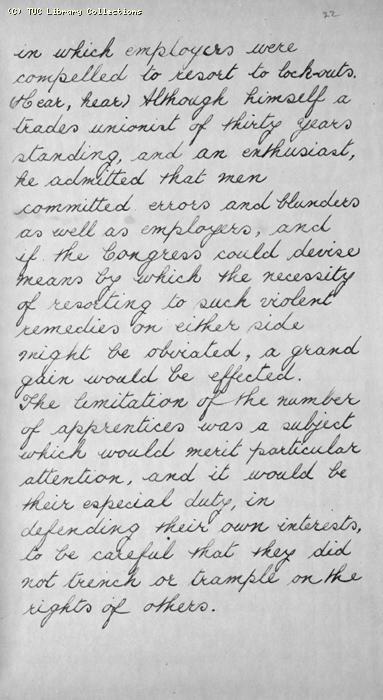 (C) TUC Library Collections
22
in which employers were
compelled to resort to lock-outs.
(Hear, hear) Although himself a
trades unionist of thirty years
standing, and an enthusiast,
he admitted that men
committed errors and blunders
as well as employers, and
if the Congress could devise
means by which the necessity
of resorting to such violent
remedies on either side
might be obviated, a grand
gain would be effected.
The limitation of the number
of apprentices was a subject
which would merit particular
attention, and it would be
their especial duty, in
defending their own interests,
to be careful that they did
not trench or trample on the
rights of others.